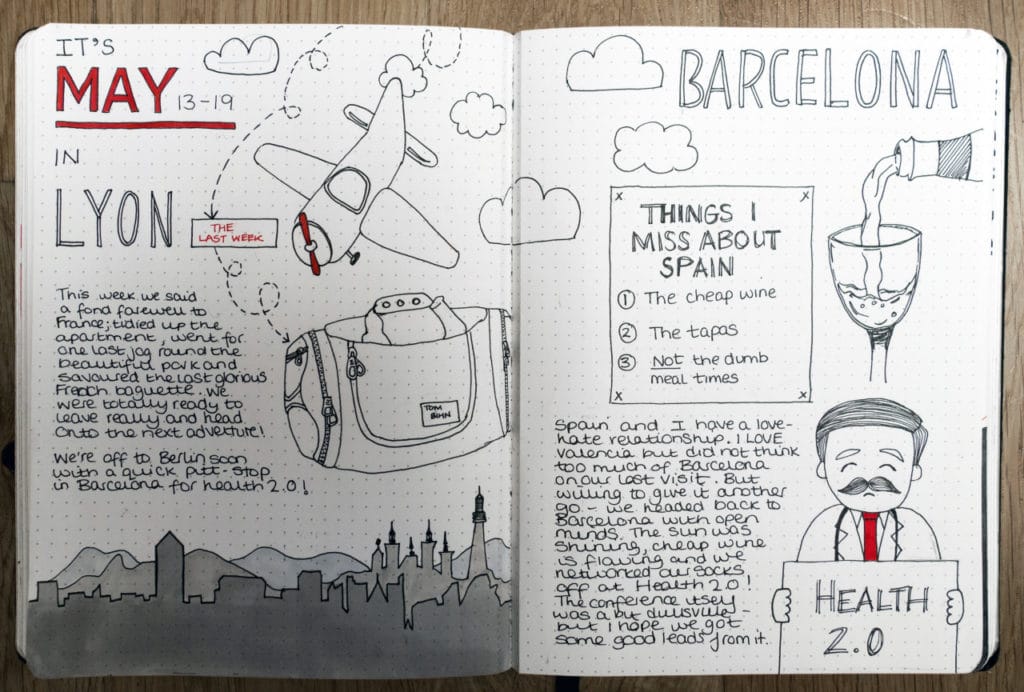 IT'S
MAY 13-19
IN
LYON
THE
LAST WEEK
This week we said
a fond farewell to
France; tidied up the
apartment, went for
one last jog round the
beautiful park and
savoured the last glorious
French baguette. We
were totally ready to
leave really and head
onto the next advture!
We're off to Berlin soon
with a quick pitt-stop
in Barcelona for health 2.0!
TOM
BIHN
BARCELONA
THINGS I
MISS ABOUT
SPAIN
1 The cheap wine
2 The tapas
3 Not the dumb
meal times
Spain and I have a love-
hate relationship. I LOVE
Valencia but did not think
too much of Barcelona
on our last visit. But
willing to give it another
go - we headed back to
Barcelona with open
minds. The sun was
shining, cheap wine
is flowing and we
networked our socks
off at Health 2.0!
The conference itself
was a bit dullsville -
but I hope we got
some good leads from it.
HEALTH
2.0